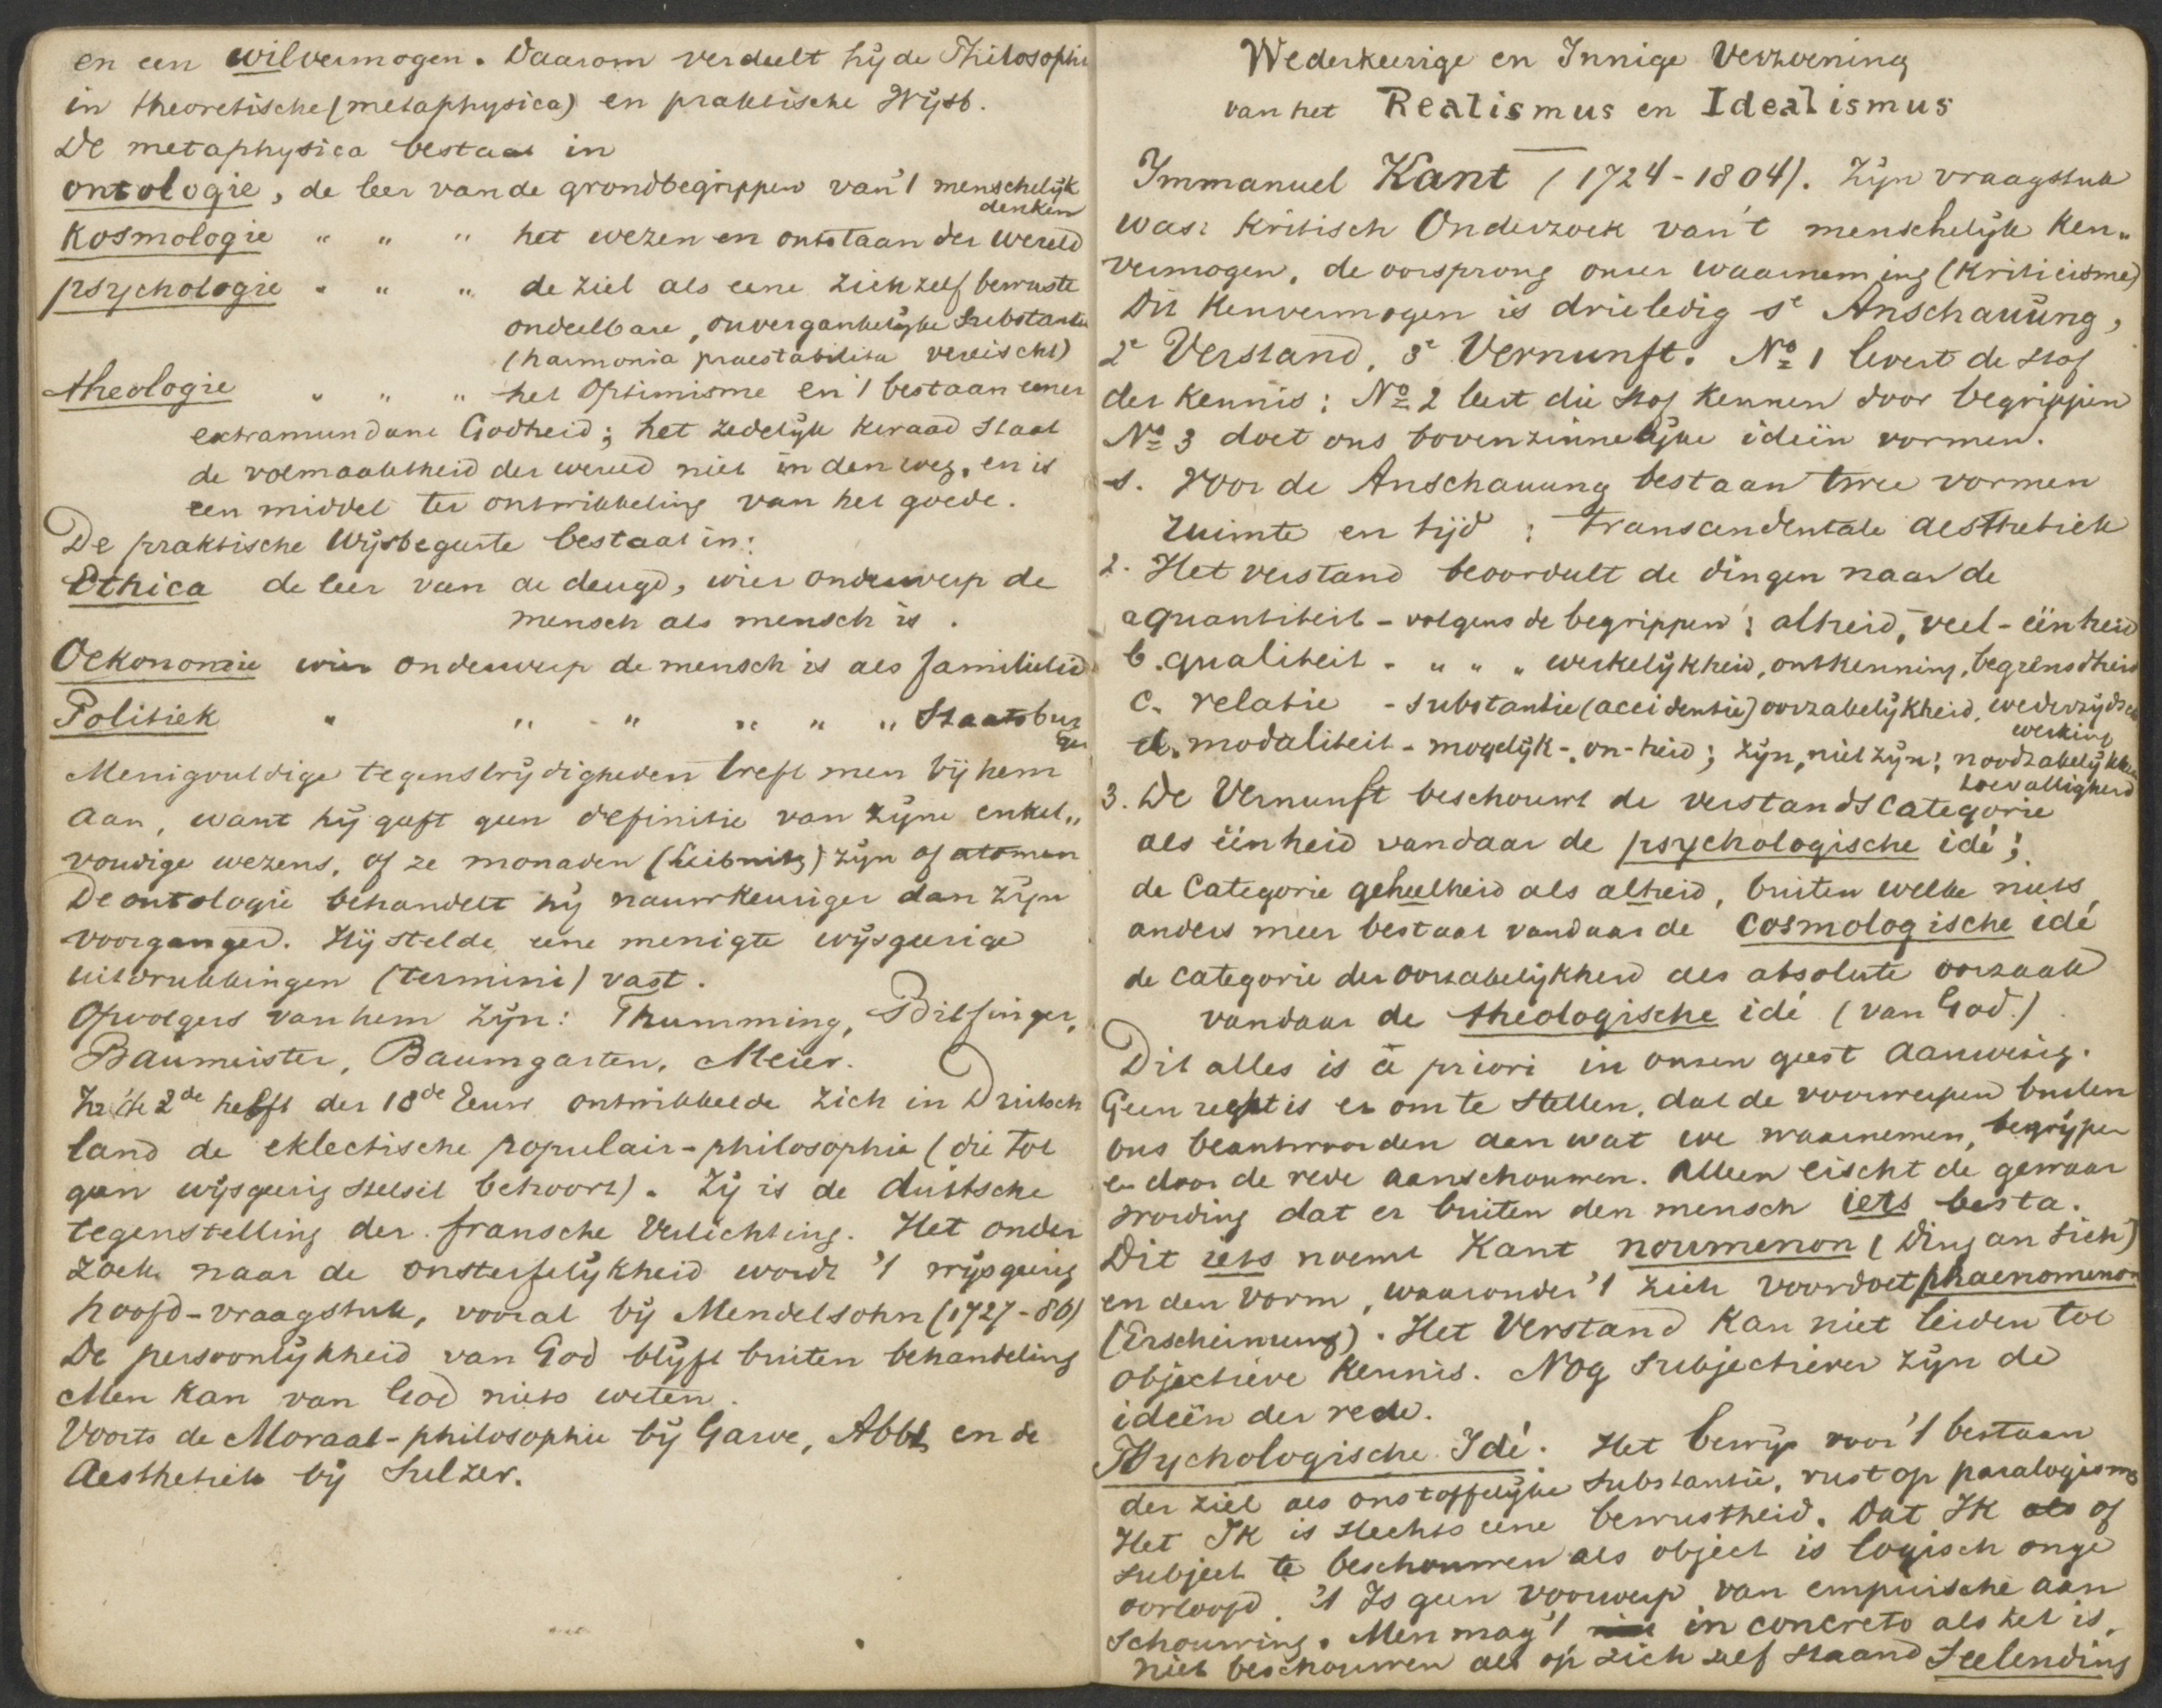 en een wilvermogen. Daarom verdeelt hij de Philosophi
in theoretische (metaphysica) en praktische Wijsb.
De metaphysica bestaat in
ontologie, de leer van de grondbegrippen van 't menschelijk
denken
Kosmologie " " " het wezen en ontstaan der wereld
psychologie " " " de ziel als eene zich zelf bewuste
ondeelbare, onvergankelijke substantie
(harmonia praestabilita vereischt)
theologie " " " het Optimisme en 't bestaan eener
extramundane Godheid; het zedelijk kwaad staat
de volmaaktheid der wereld niet in den weg, en is
een middel ter ontwikkeling van het goede.
De praktische Wijsbegeerte bestaat in:
Ethica de leer van de deugd, wier onderwerp de
mensch als mensch is.
Oekonomie wier onderwerp de mensch is als familielid
Politiek " " " " " " Staatsbur
ger
Menigvuldige tegenstrijdigheden treft men bij hem
aan, want hij geeft geen definitie van zijne enkel„
voudige wezens, of ze monaden (Leibnitz) zijn of atomen
De ontologie behandelt hij nauwkeuriger dan zijn
voorganger. Hij stelde eene menigte wijsgeerige
uitdrukkingen (termini) vast.
Opvolgers van hem zijn: Thumming, Bilfinger,
Baumeister, Baumgarten, Meier.
In de 2de helft der 18de Eeuw ontwikkelde zich in Duitsch
land de eklectische populair-philosophie (die tot
geen wijsgeerig stelsel behoort). Zij is de duitsche
tegenstelling der fransche Verlichting. Het onder
zoek naar de onsterfelijkheid wordt 't wijsgeerig
hoofd-vraagstuk, vooral bij Mendelsohn (1727-86)
De persoonlijkheid van God blijft buiten behandeling
Men kan van God niets weten.
Voorts de Moraal-philosophie bij Garve, Abbt, en de
Aesthetiek bij Sulzer.
Wederkeerige en Innige Verzoening
van het Realismus en Idealismus
Immanuel Kant (1724-1804). Zijn vraagstuk
was: Kritisch Onderzoek van 't menschelijk Ken„
vermogen, de oorsprong onzer waarneming (Kriticisme)
Dit Kenvermogen is drieledig 1e Anschauüng,
2e Verstand, 3e Vernunft. No 1 levert de stof
der kennis; No 2 leert die stof kennen door begrippen
No 3 doet ons bovenzinnelijke ideën vormen.
1. Voor de Anschauung bestaan twee vormen
ruimte en tijd: transcendentale aesthetiek
2. Het verstand beoordeelt de dingen naar de
a quantiteit - volgens de begrippen: alheid, veel- éénheid
b. qualiteit - " " " werkelijkheid, ontkenning, begrensdheid
c. relatie - substantie (accidentie) oorzakelijkheid, wederzijdsche
werking
d. modaliteit - mogelijk-, on-heid; zijn, niet zijn; noodzakelijkheid
toevalligheid
3. De Vernunft beschouwt de verstandscategorie
als éénheid vandaar de psychologische idé;
de Categorie geheelheid als alheid, buiten welke niets
anders meer bestaat vandaar de cosmologische idé
de categorie der oorzakelijkheid als absolute oorzaak
vandaar de theologische idé (van God.)
Dit alles is à priori in onzen geest aanwezig.
Geen recht is er om te stellen, dat de voorwerpen buiten
ons beantwoorden aan wat we waarnemen, begrijpen
en door de rede aanschouwen. Alleen eischt de gewaar
wording dat er buiten den mensch iets besta.
Dit iets noemt Kant noumenon (Ding an sich)
en den vorm, waaronder 't zich voordoet phaenomenon
(Erscheinung). Het Verstand kan niet leiden tot
objectieve kennis. Nog subjectiever zijn de
ideën der rede.
Psychologische Idé. Het bewijs voor 't bestaan
der ziel als onstoffelijke substantie, rust op paralogisme
Het Ik is slechts eene bewustheid. Dat Ik als of
subject te beschouwen als object is logisch onge
oorloofd. 't Is geen voorwerp van empirische aan
schouwing. Men mag 't in concreto als het is,
niet beschouwen als op zich zelf staand Seelending